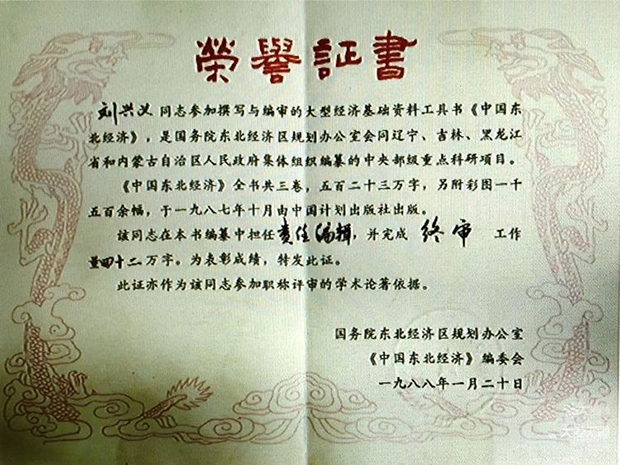 榮譽証書
刘兴义同志参加撰写与编审的大型经济基础资料工具书《中国东
北经济》，是国务院东北经济区规划办公室会同辽宁、吉林、黑龙江
省和内蒙古自治区人民政府集体组织编纂的中央部级重点科研项目。
《中国东北经济》全书共三卷，五百二十三万字，另附彩图一千
五百余幅，于一九八七年十月由中国计划出版社出版。
该同志在本书编纂中担任责任编辑，并完成 终审 工作
量四十二万字。为表彰成绩，特发此证。
此证亦作为该同志参加职称评审的学术论著依据。
国务院东北经济区规划办公室
《中国东北经济》编委会
一九八八年一月二十日